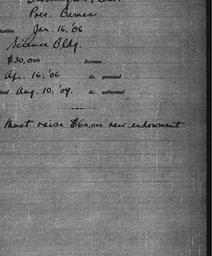 Pres. Barnes
Jan. 16, '06
Science Bldg.
$30,000 Increase
Apr. 16, '06 do. promised
Aug. 10, '09. do. authorized
Must raise $60,000 new endowment